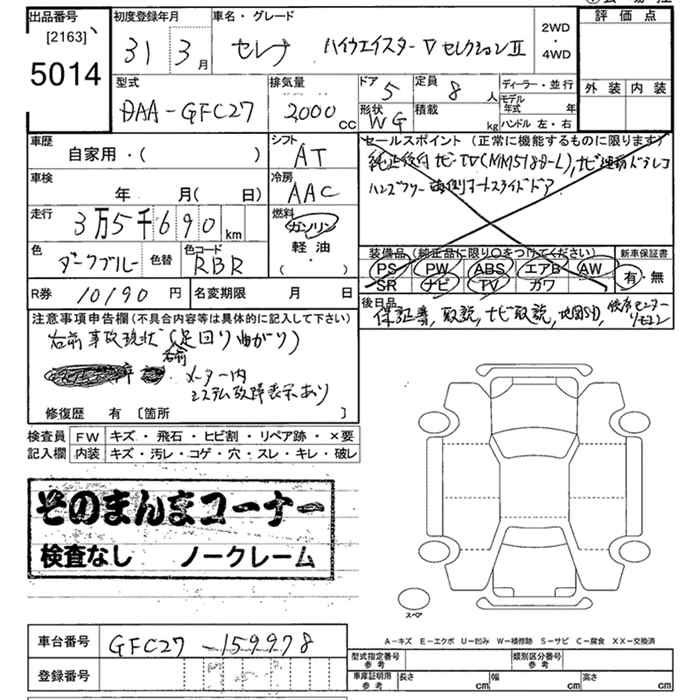 出品番号
[2163]
5014
初度登録年月
31 3月
車名・グレード
セレナ ハイウエイスターV セレクションⅡ
2WD
・
4WD
評価点
外装 内装
型式
DAA-GFC27
排気量
2000cc
ドア 5
定員 8人
形状 WG
積載 kg
ディーラー・並行
モデル年式 年
ハンドル 左・右
車歴
自家用・( )
シフト
AT
車検
年 月( 日)
冷房
AAC
走行
3万5千690km
燃料
ガソリン
軽油
( ・ )
色
ダークブルー
色替
色コード
RBR
R券 10190円
名変期限 月 日
セールスポイント(正常に機能するものに限ります)
純正後付ナビ・TV(MM518D-L),ナビ連動ドラレコ
ハンズフリー両側オートスライドドア
装備品(純正品に限り○をつけてください)
PS PW ABS エアB AW
SR ナビ TV カワ
新車保証書
有・無
後日品
保証書,取説,ナビ取説,地図SD,
注意事項申告欄(不具合内容等は具体的に記入して下さい)
右前 事故現状(足回り曲がり)
右前
メーター内
システム故障表示あり
修復歴 有 [箇所 ]
検査員記入欄
FW キズ・飛石・ヒビ割・リペア跡・×要
内装 キズ・汚レ・コゲ・穴・スレ・キレ・破レ
そのまんまコーナー
検査なし ノークレーム
スペア
A-キズ E-エクボ U-凹み W-補修跡 S-サビ C-腐食 XX-交換済
車台番号 GFC27-159978
登録番号
型式指定番号 参考
類別区分番号 参考
車庫証明用 参考
長さ cm 幅 cm 高さ cm